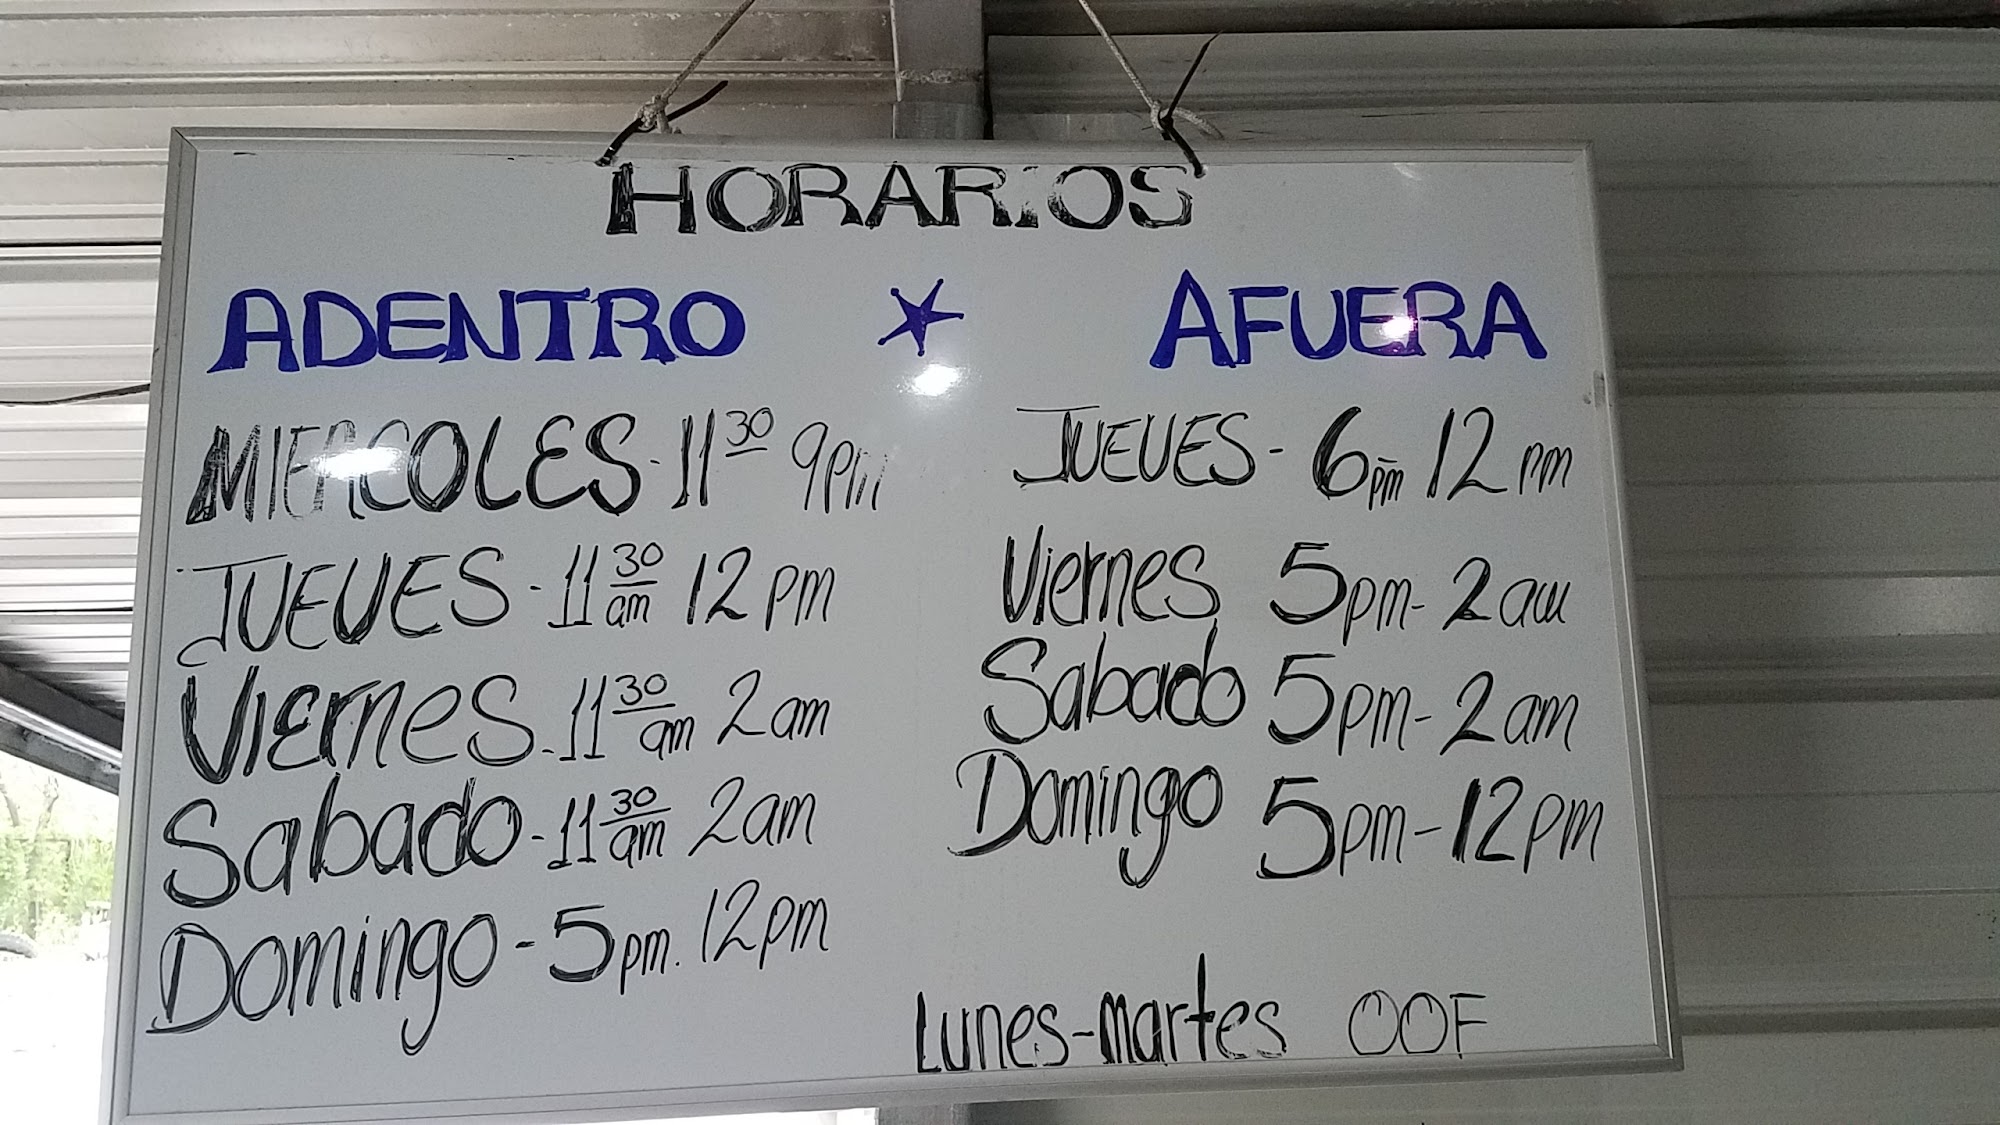 HORARIOS
ADENTRO
MIERCOLES - 11 30 9pm
JUEVES - 11 30 am 12 pm
Viernes - 11 30 am 2 am
Sabado - 11 30 am 2 am
Domingo - 5 pm. 12 pm
AFUERA
JUEVES - 6 pm 12 pm
Viernes 5 pm - 2 am
Sabado 5 pm - 2 am
Domingo 5 pm - 12 pm
Lunes - martes OOF